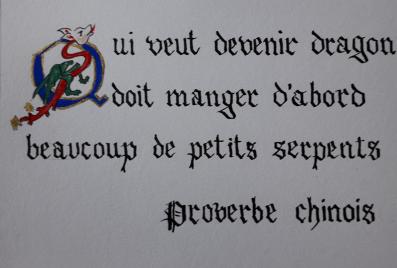 Qui veut devenir dragon
doit manger d'abord
beaucoup de petits serpents
Proverbe chinois